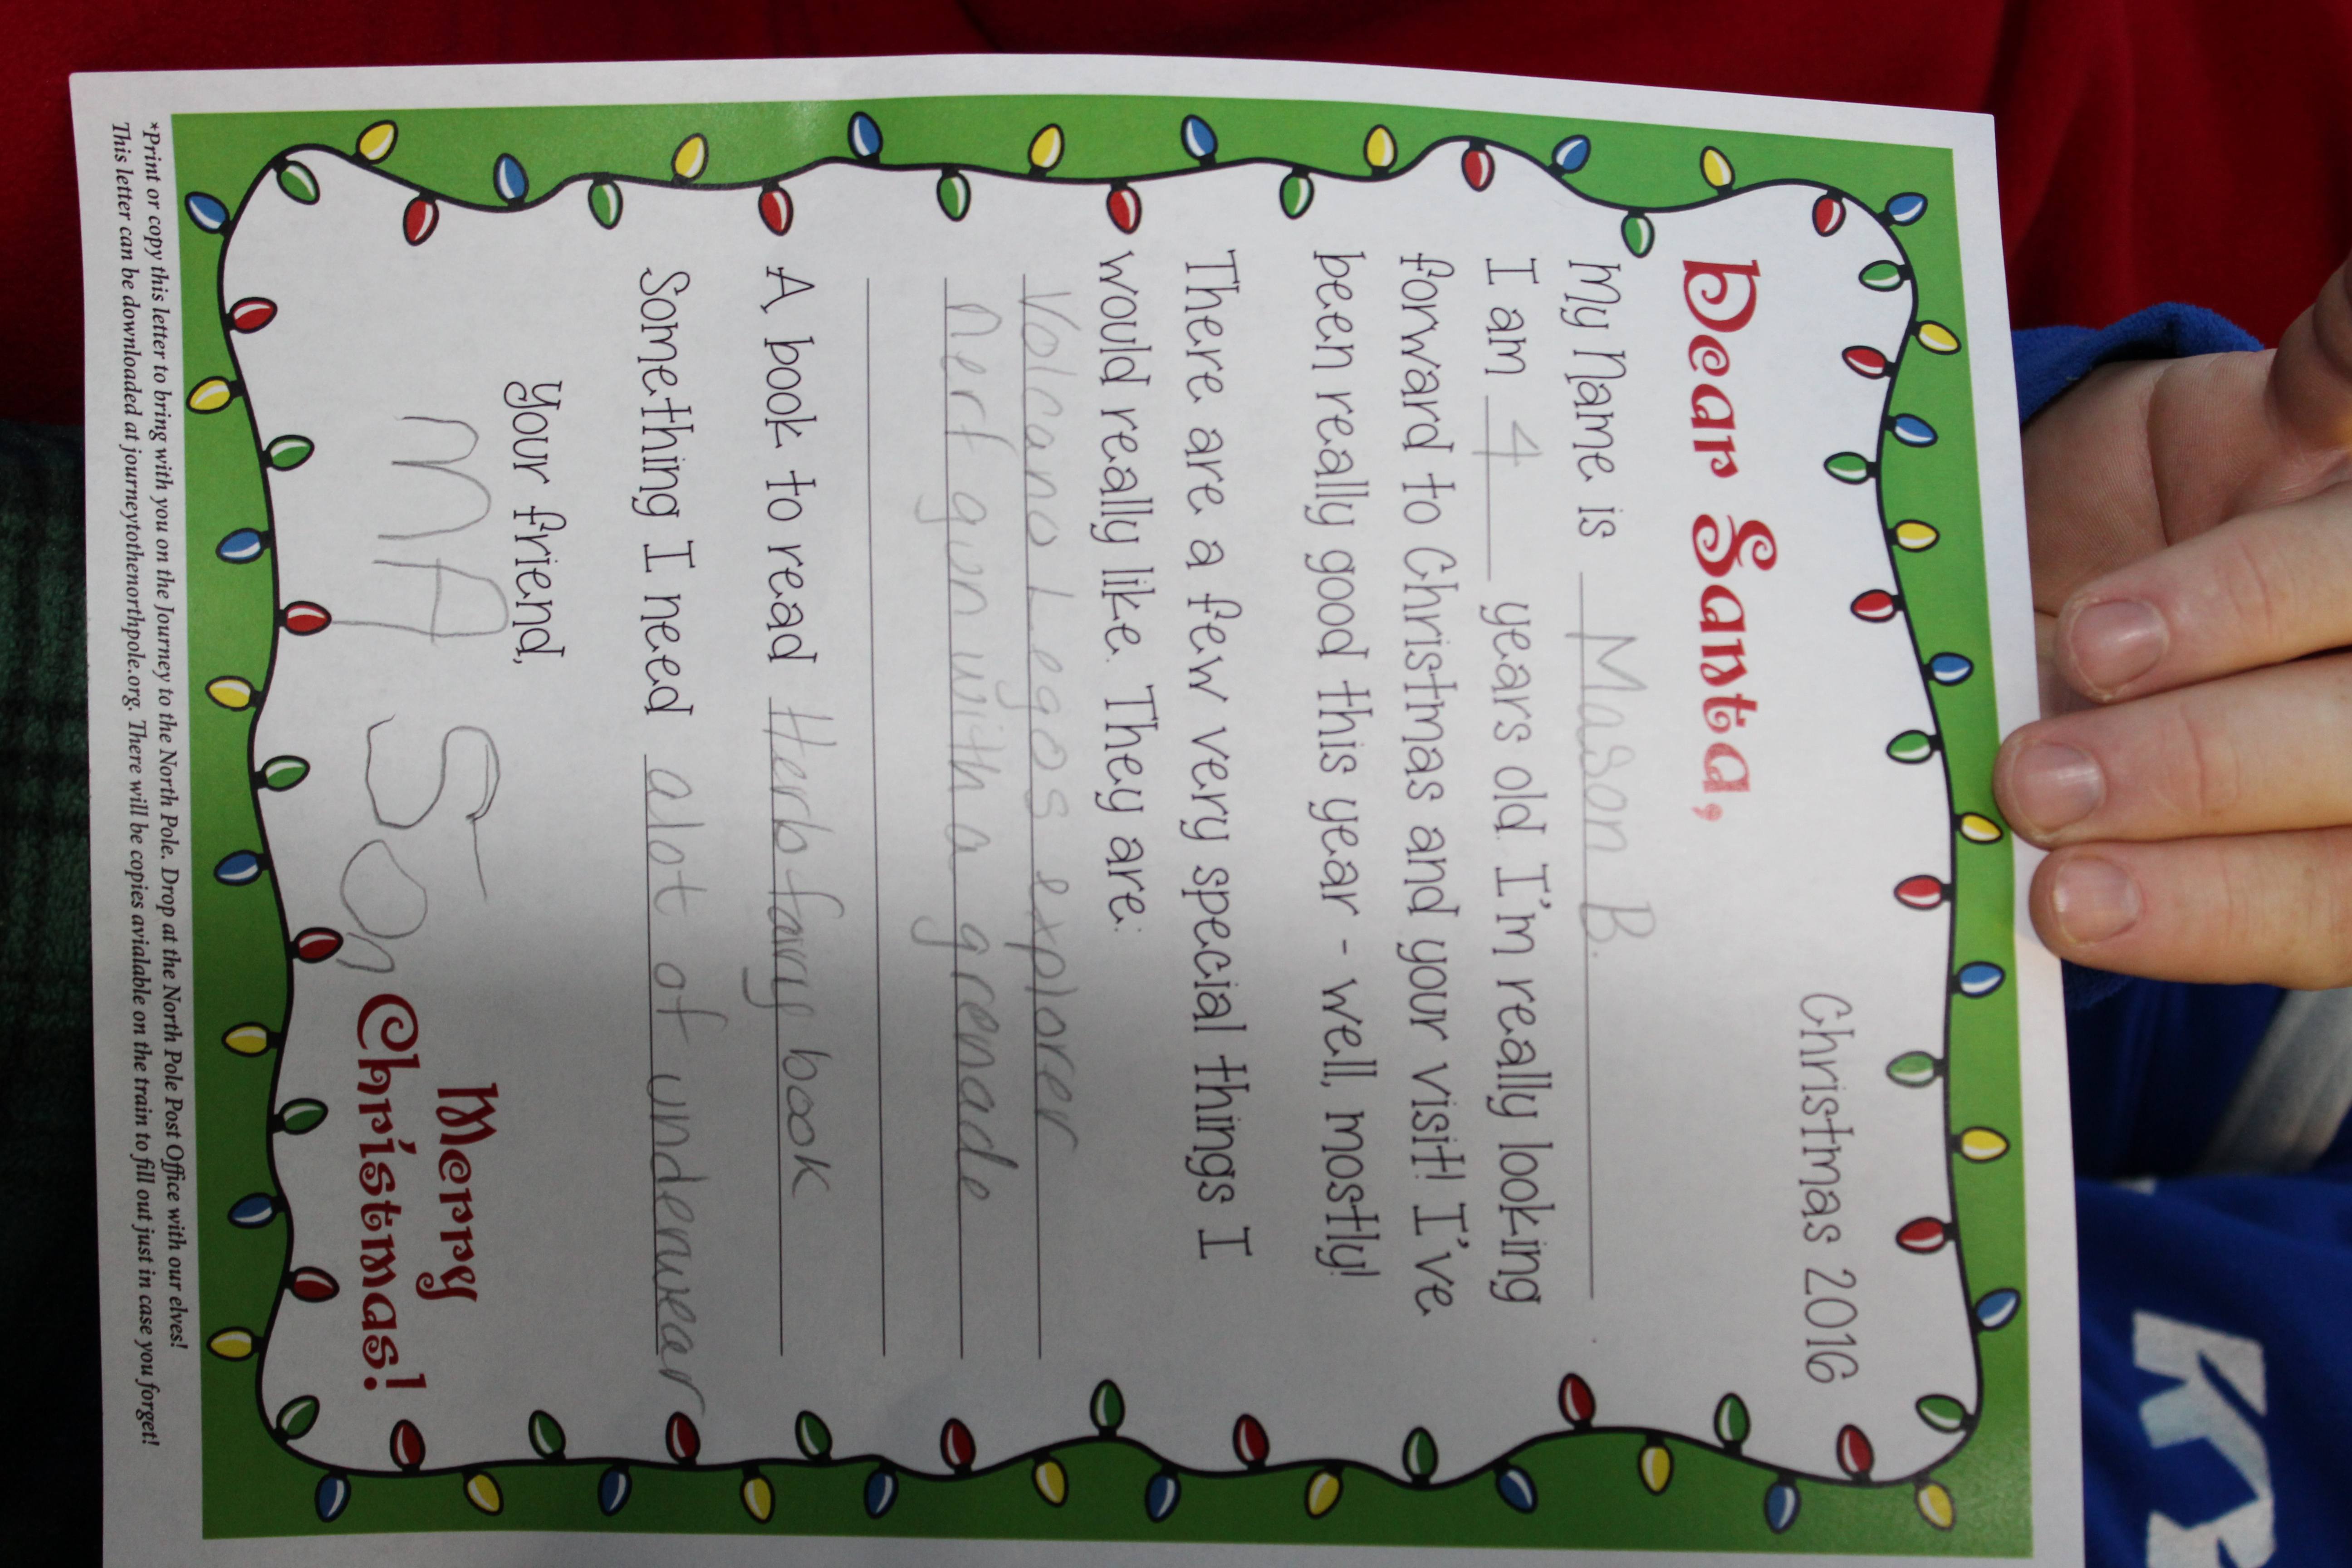 Christmas 2016
Dear Santa,
My Name is Mason B.
I am 4 years old. I'm really looking
forward to Christmas and your visit! I've
been really good this year - well, mostly!
There are a few very special things I
would really like. They are:
Volcano Legos explorer
nerf gun with a grenade
A book to read Herb fairy book
Something I need alot of underwear
your friend,
MASon
Merry
Christmas!
*Print or copy this letter to bring with you on the Journey to the North Pole. Drop at the North Pole Post Office with our elves!
This letter can be downloaded at journeytothenorthpole.org. There will be copies avialable on the train to fill out just in case you forget!